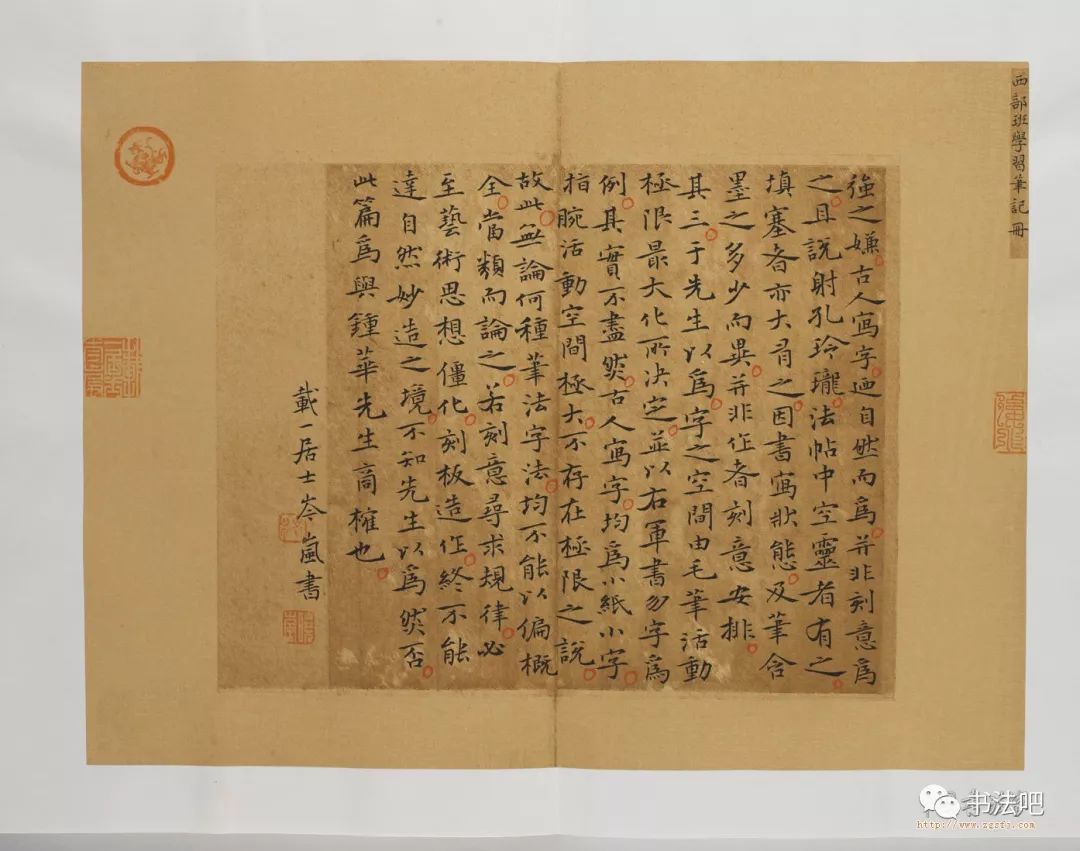 西部班學習筆記冊
強之嫌古人寫字迺自然而爲並非刻意爲
之且說射孔玲瓏法帖中空靈者有之
填塞者亦大有之因書寫狀態及筆含
墨之多少而異並非作者刻意安排
其三于先生以爲字之空間由毛筆活動
極限最大化所決定並以右軍書勿字爲
例其實不盡然古人寫字均爲小紙小字
指腕活動空間極大不存在極限之說
故此無論何種筆法字法均不能以偏概
全當類而論之若刻意尋求規律必
至藝術思想僵化刻板造作終不能
達自然妙造之境不知先生以爲然否
此篇爲與鍾華先生商榷也
載一居士岑嵐書
书法吧
http://www.zgsfj.com